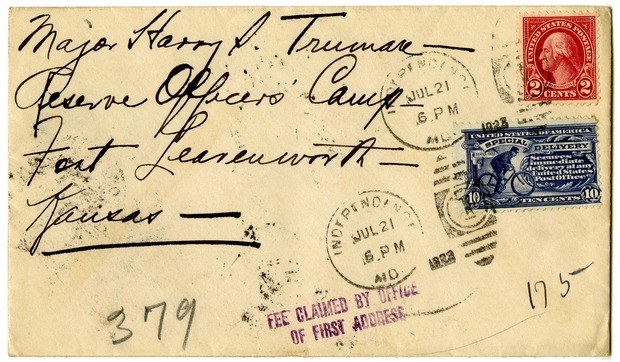 Major Harry S. Truman —
Reserve Officers' Camp —
Fort Leavenworth —
Kansas —
UNITED STATES POSTAGE
2 CENTS 2
INDEPENDENCE
JUL 21
6 PM
MO
1923
UNITED STATES OF AMERICA
SPECIAL DELIVERY
Secures
immediate
delivery at any
United States
Post Office
10 TEN CENTS 10
INDEPENDENCE
JUL 21
6 PM
MO
1923
FEE CLAIMED BY OFFICE
OF FIRST ADDRESS
379
175